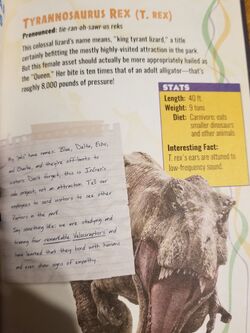 TYRANNOSAURUS REX (T. REX)
Pronounced: tie-ran-oh-sawr-us reks
This colossal lizard's name means, "king tyrant lizard," a title
certainly befitting the mostly highly-visited attraction in the park.
But this female asset should actually be more appropriately hailed as
the "Queen." Her bite is ten times that of an adult alligator—that's
roughly 8,000 pounds of pressure!
STATS
Length: 40 ft.
Weight: 9 tons
Diet: Carnivore; eats
smaller dinosaurs
and other animals
Interesting Fact:
T. rex's ears are attuned to
low-frequency sound.
My "girls" have names: Blue, Delta, Echo,
and Charlie and they're off-limits to
visitors. Don't forget, this is InGen's
side project, not an attraction. Tell our
employees to send visitors to see other
raptors in the park.
Say something like: we are studying and
training four remarkable Velociraptors and
have learned that they bond with humans
and even show signs of empathy.